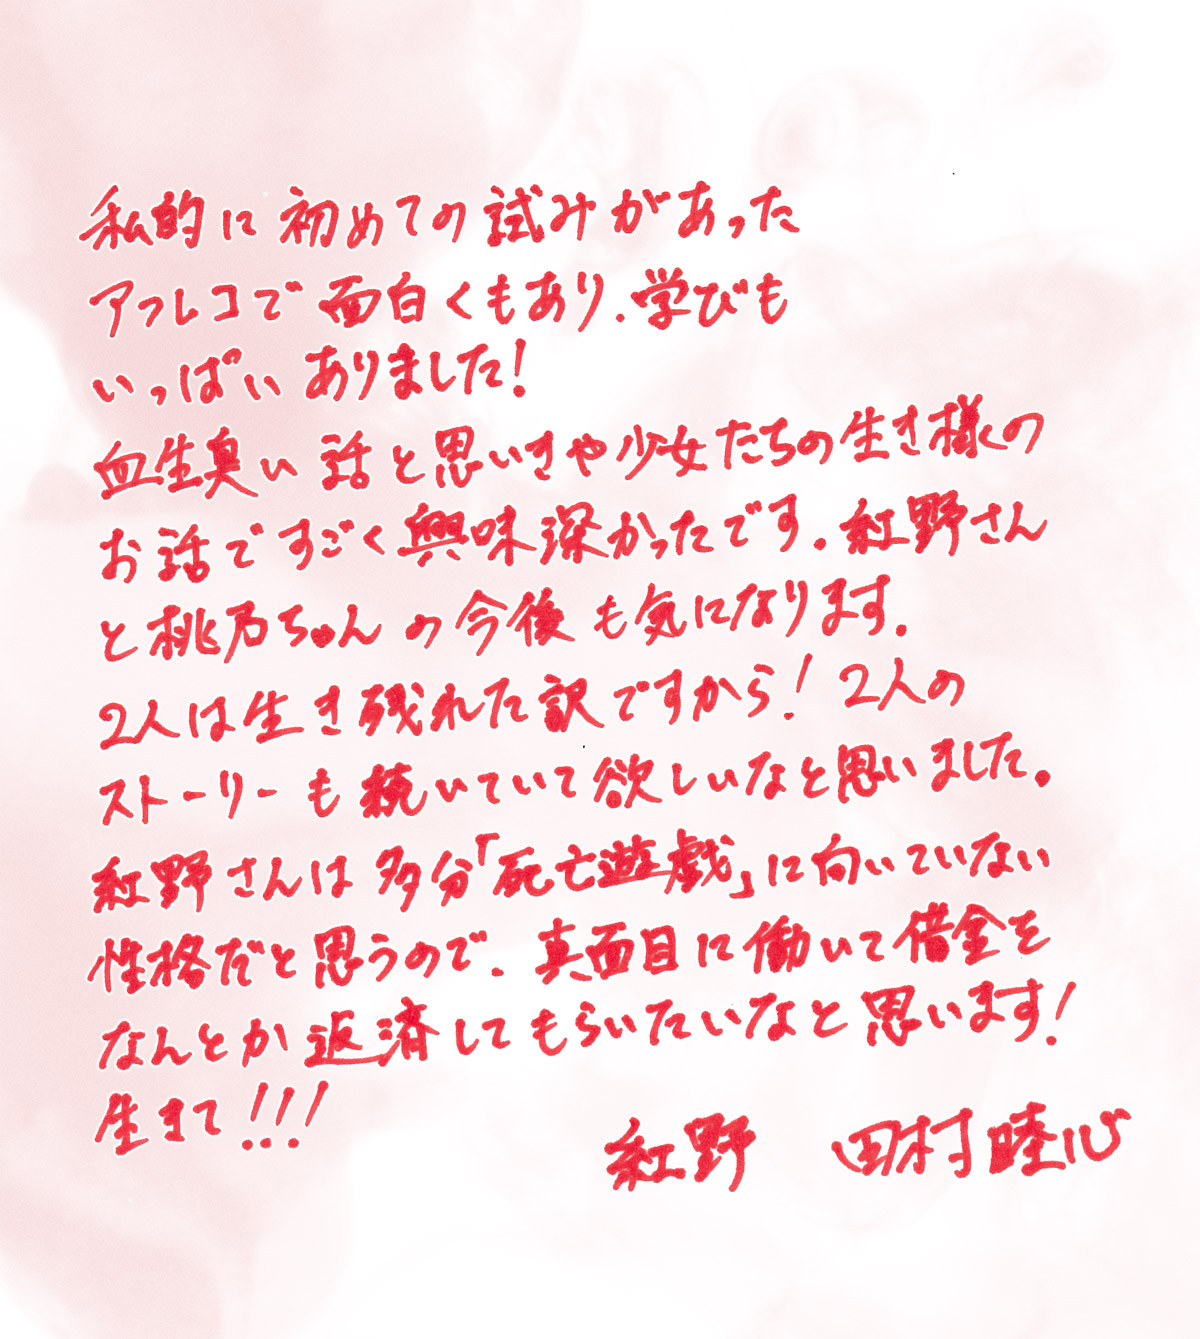 私的に初めての試みがあった
アフレコで面白くもあり、学びも
いっぱいありました!
血生臭い話と思いきや少女たちの生き様の
お話ですごく興味深かったです。紅野さん
と桃乃ちゃんの今後も気になります。
2人は生き残れた訳ですから!2人の
ストーリーも続いていて欲しいなと思いました。
紅野さんは多分「死亡遊戯」に向いていない
性格だと思うので、真面目に働いて借金を
なんとか返済してもらいたいなと思います!
生きて!!!
紅野 田村睦心